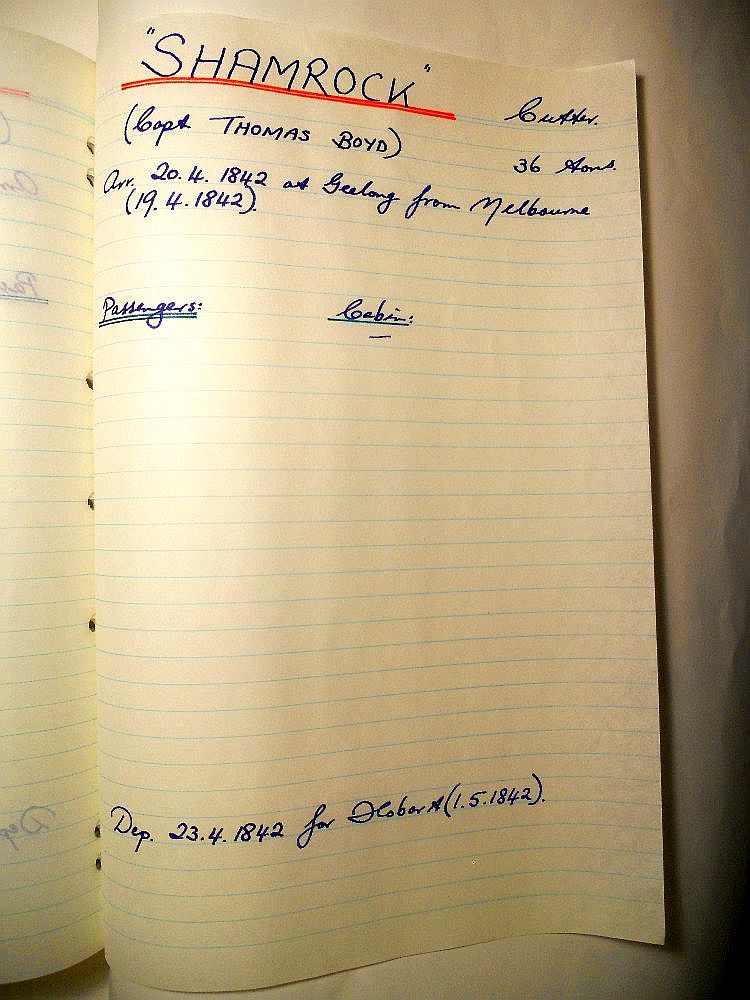 "SHAMROCK"
Cutter.
(Capt THOMAS BOYD)
36 tons.
Arr. 20.4.1842 at Geelong from Melbourne
(19.4.1842).
Passengers:
Cabin:
—
Dep. 23.4.1842 for Hobart (1.5.1842).